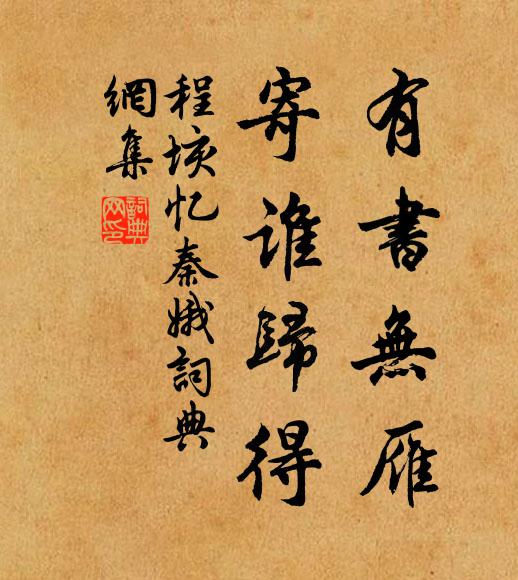 有書無雁
寄誰歸得
程垓忆秦娥詞典
網集
詞典
网印